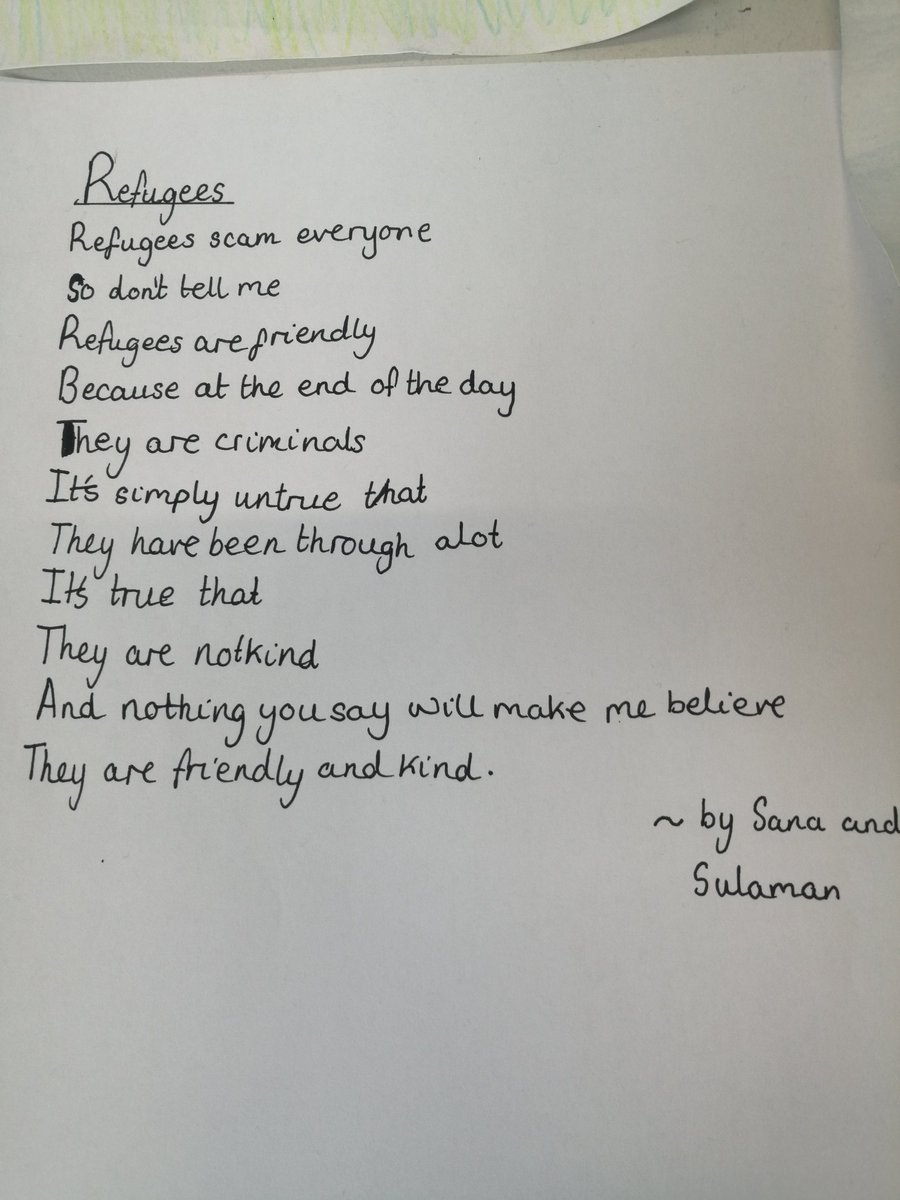 Refugees
Refugees scam everyone
So don't tell me
Refugees are friendly
Because at the end of the day
They are criminals
It's simply untrue that
They have been through alot
It's true that
They are notkind
And nothing you say will make me believe
They are friendly and kind.
~ by Sana and
Sulaman